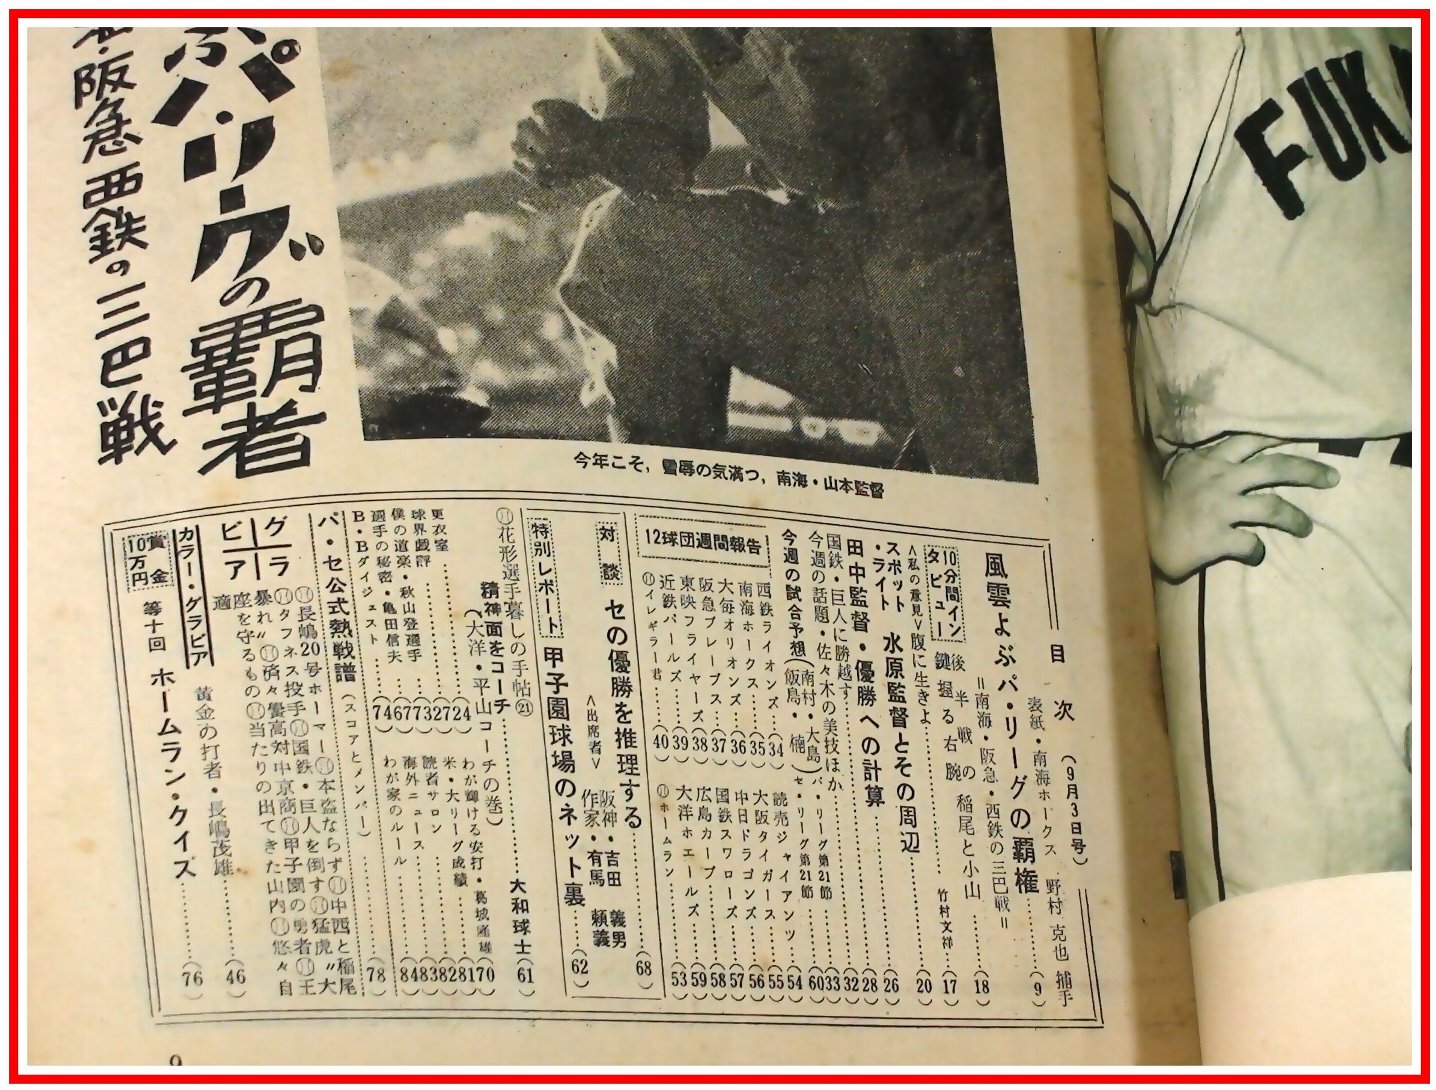 FUK
ぶパ・リーグの覇者
・阪急・西鉄の三巴戦
今年こそ，雪辱の気満つ，南海・山本監督
目次 (9月3日号)
表紙・南海ホークス 野村克也捕手
風雲よぶパ・リーグの覇権 (9)
=南海・阪急・西鉄の三巴戦=
後半戦の稲尾と小山 (18)
10分間インタビュー 鍵握る右腕 竹村文祥 (17)
<私の意見>腹に生きよ (20)
スポット・ライト 水原監督とその周辺 (26)
田中監督・優勝への計算 (28)
国鉄・巨人に勝越す (32)
今週の話題・佐々木の美技ほか (33)
今週の試合予想 (南村・大島) パ・リーグ第21節 (飯島・楠) セ・リーグ第21節 (60)
12球団週間報告
西鉄ライオンズ (34)
南海ホークス (35)
大毎オリオンズ (36)
阪急ブレーブス (37)
東映フライヤーズ (38)
近鉄パールズ (39)
イレギラー君 (40)
読売ジャイアンツ (54)
大阪タイガース (55)
中日ドラゴンズ (56)
国鉄スワローズ (57)
広島カープ (58)
大洋ホエールズ (59)
ホームラン (53)
対談 セの優勝を推理する (68)
<出席者> 阪神・吉田義男
作家・有馬頼義
特別レポート 甲子園球場のネット裏 (62)
花形選手暮しの手帖㉑ 大和球士 (61)
精神面をコーチ
(大洋・平山コーチの巻)
更衣室 (24)
球界戯評 (27)
僕の道楽・秋山登選手 (32)
選手の秘密・亀田信夫 (77)
B・Bダイジェスト (74)
わが輝ける安打・葛城隆雄 (70)
米・大リーグ成績 (81)
読者サロン (82)
海外ニュース (83)
わが家のルール (84)
パ・セ公式熱戦譜 (スコアとメンバー) (78)
グラビア
長嶋20号ホーマー 本盗ならず 中西と稲尾
タフネス投手 国鉄・巨人を倒す 猛虎〝大
暴れ〟 済々黌高対中京商 甲子園の勇者 王
座を守るもの 当たりの出てきた山内 悠々自
適
カラー・グラビア 黄金の打者・長嶋茂雄 (46)
賞金10万円 第十回 ホームラン・クイズ (76)
9